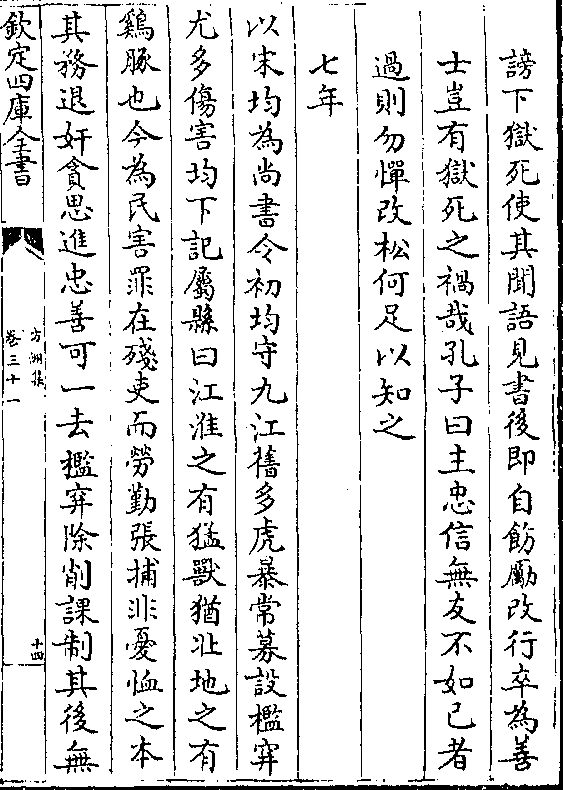 謗下獄死使其聞語見書後即自飭勵改行卒為善
士豈有獄死之禍哉孔子曰主忠信無友不如已者
過則勿憚改松何足以知之
七年
以宋均為尚書令初均守九江舊多虎暴常募設檻穽
尤多傷害均下記屬縣曰江淮之有猛獸猶北地之有
鷄豚也今為民害罪在殘吏而勞勤張捕非憂恤之本
其務退奸貪思進忠善可一去檻穽除削課制其後無
欽定四庫全書
方洲集
卷三十一
十四